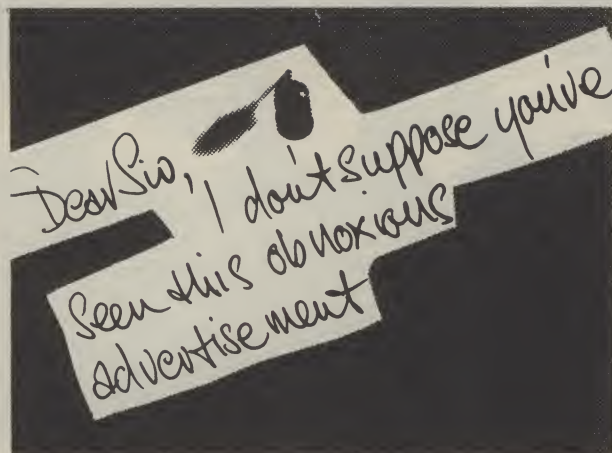 Dear Sir, I don't suppose you've
seen this obnoxious
advertisement